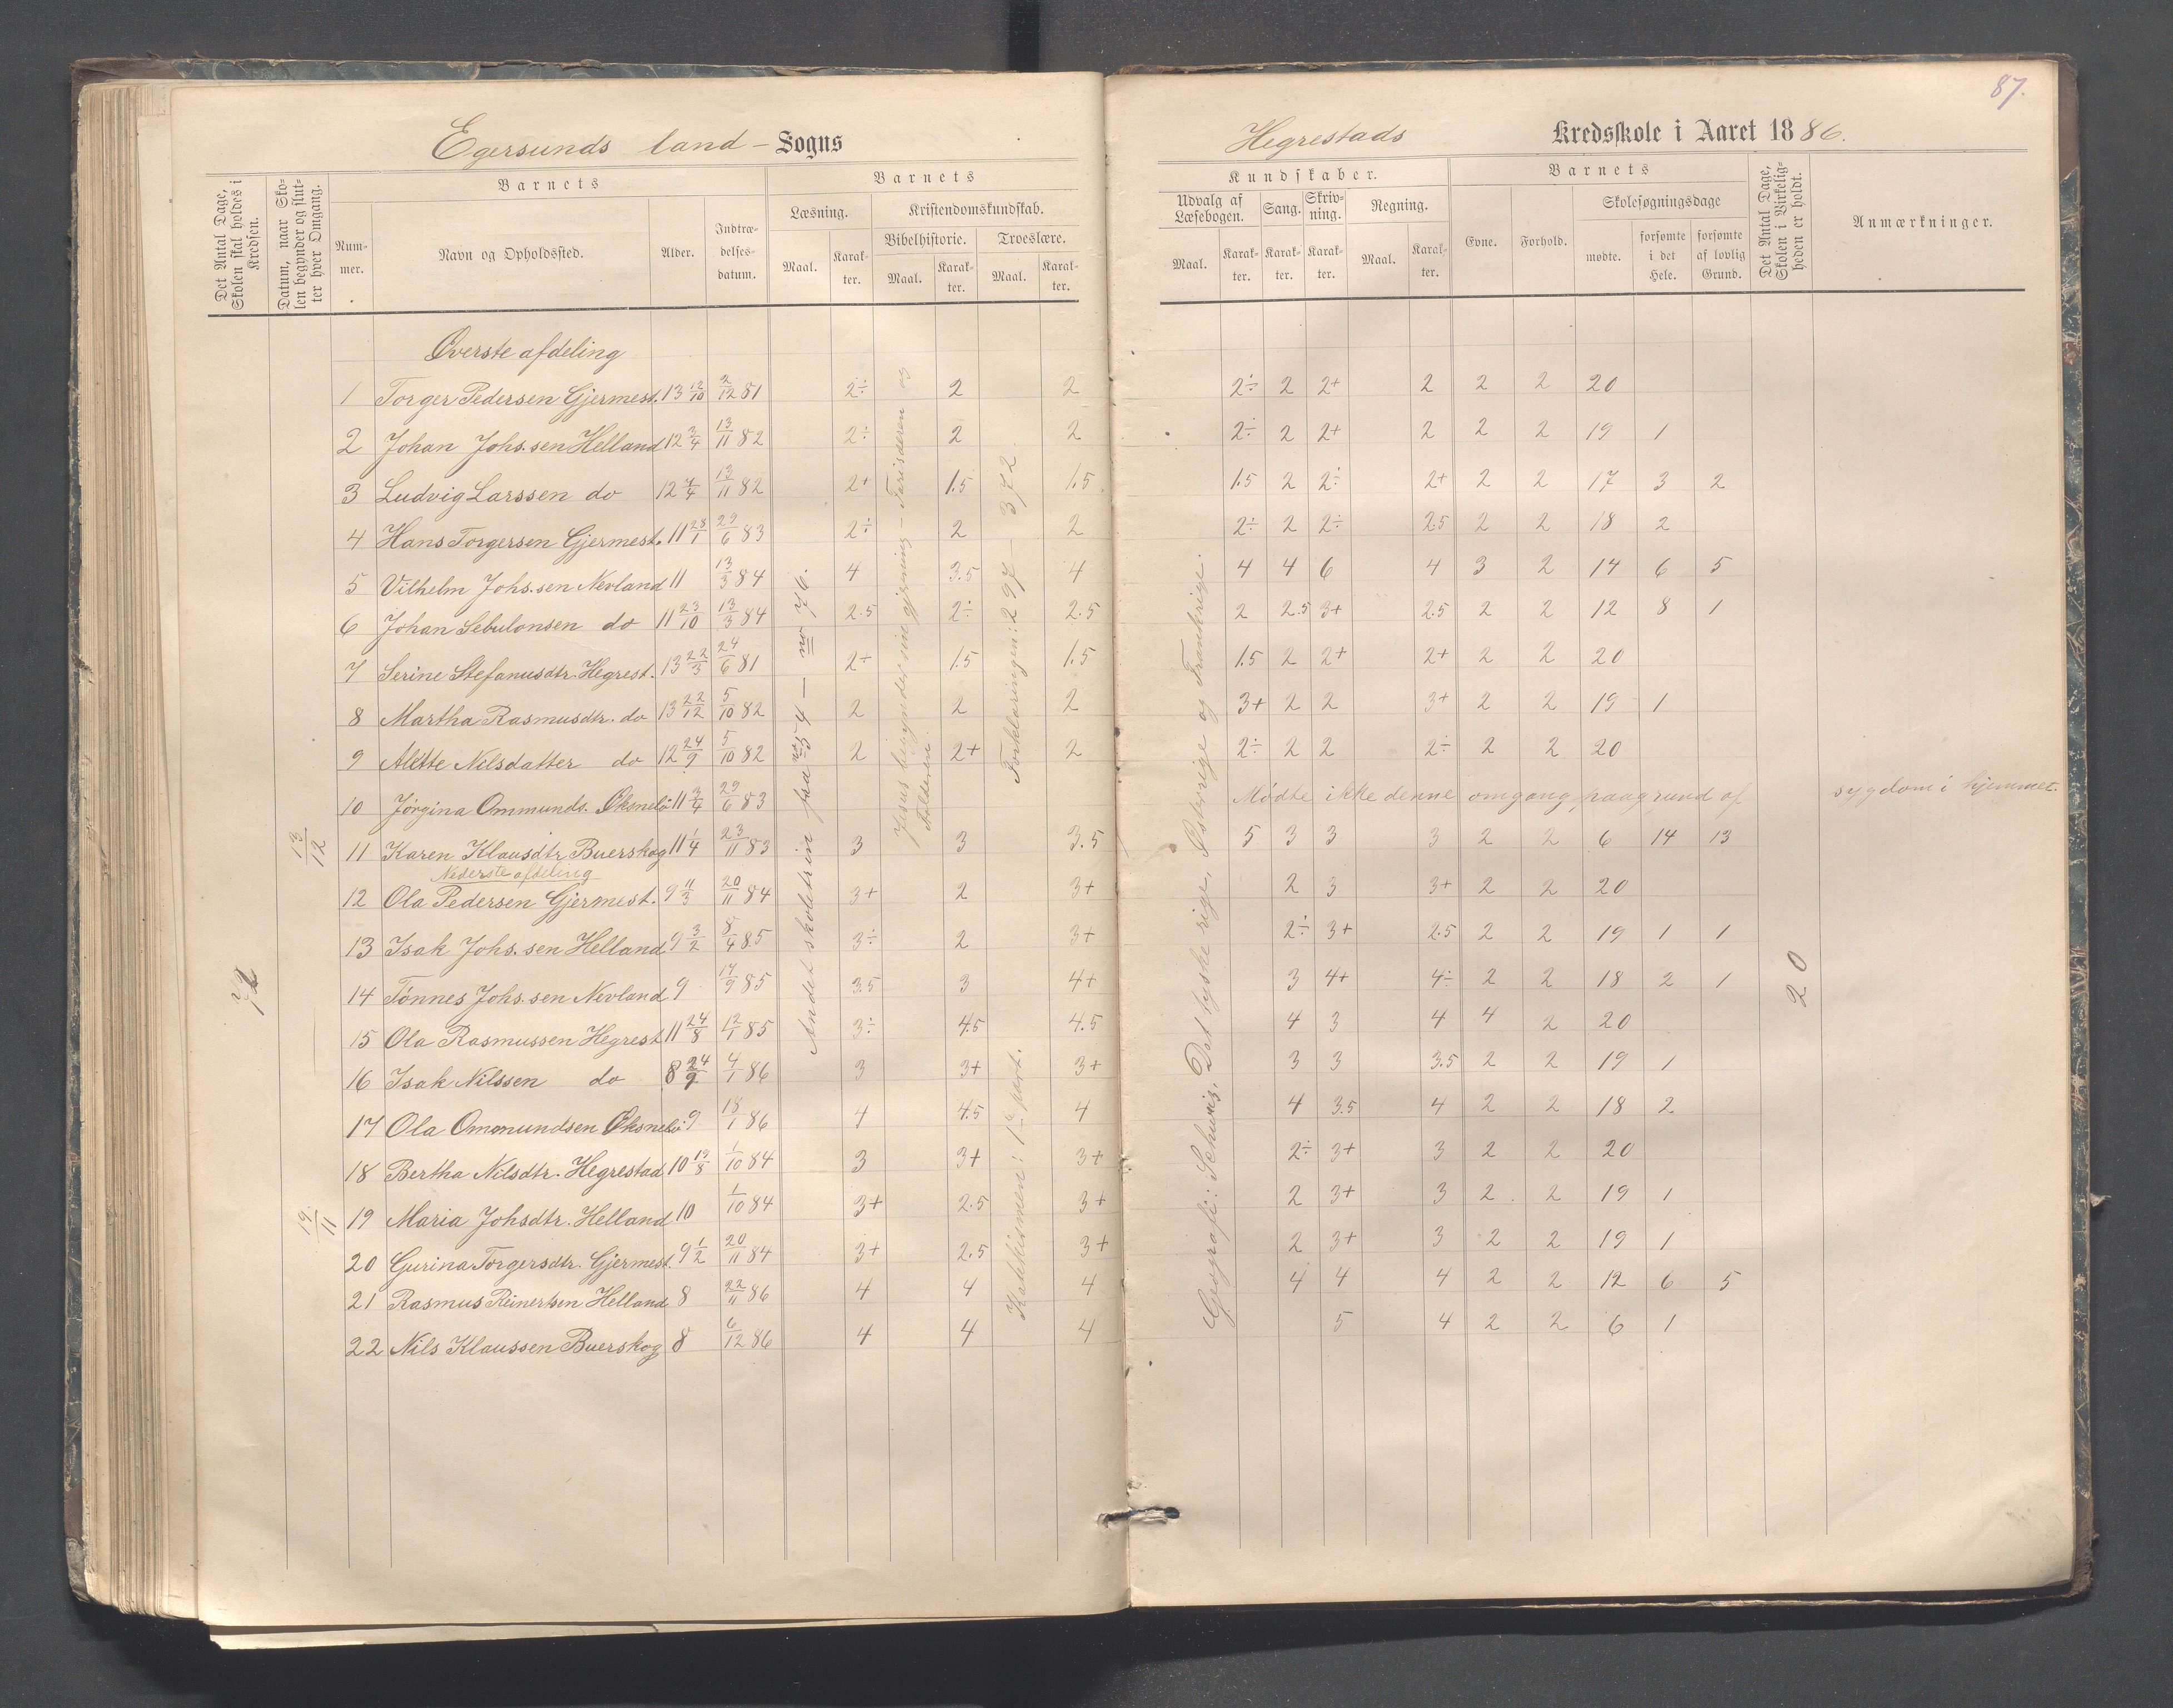 87.
Egersunds land - Sogns
Hegrestads Kredsskole i Aaret 1886.
Det Antal Dage, Skolen skal holdes i Kredsen.
Datum, naar Skolen begynder og slutter hver Omgang.
Barnets
Nummer.
Navn og Opholdssted.
Alder.
Indtrædelsesdatum.
Barnets
Læsning.
Kristendomskundskab.
Bibelhistorie.
Troeslære.
Maal. Karakter. Maal. Karakter. Maal. Karakter.
Kundskaber.
Udvalg af Læsebogen.
Sang.
Skrivning.
Regning.
Maal. Karakter. Karakter. Karakter. Maal. Karakter.
Barnets
Evne. Forhold.
Skolesøgningsdage
mødte. forsømte i det Hele. forsømte af lovlig Grund.
Det Antal Dage, Skolen i Virkeligheden er holdt.
Anmærkninger.
Øverste afdeling
1 Torger Pedersen Gjermest. 13 12/10 2/12 81 2÷ 2 2 2÷ 2 2+ 2 2 2 20
2 Johan Johs.sen Helland 12 3/4 13/11 82 2÷ 2 2 2÷ 2 2+ 2 2 2 19 1
3 Ludvig Larssen do 12 7/4 13/11 82 2+ 1.5 1.5 1.5 2 2÷ 2+ 2 2 17 3 2
4 Hans Torgersen Gjermest. 11 28/1 29/6 83 2÷ 2 2 2÷ 2 2÷ 2.5 2 2 18 2
5 Vilhelm Johs.sen Nevland 11 13/3 84 4 3.5 4 4 4 6 4 3 2 14 6 5
6 Johan Sebulonsen do 11 23/10 13/3 84 2.5 2÷ 2.5 2 2.5 3+ 2.5 2 2 12 8 1
7 Serine Stefanusdtr. Hegrest. 13 22/3 24/6 81 2+ 1.5 1.5 1.5 2 2+ 2+ 2 2 20
8 Martha Rasmusdtr. do 13 22/12 5/10 82 2 2 2 3+ 2 2 3+ 2 2 19 1
9 Alette Nilsdatter do 12 24/9 5/10 82 2 2+ 2 2÷ 2 2 2÷ 2 2 20
10 Jørgina Ommunds. Øksnelo 11 3/4 29/6 83 Mødte ikke denne omgang paa grund af sygdom i hjemmet.
11 Karen Klausdtr Buerskog 11 1/4 23/11 83 3 3 3.5 5 3 3 3 2 2 6 14 13
Nederste afdeling
12 Ola Pedersen Gjermest. 9 11/3 20/11 84 3+ 2 3+ 2 3 3+ 2 2 20
13 Isak Johs.sen Helland 9 3/2 8/4 85 3÷ 2 3+ 2÷ 3+ 2.5 2 2 19 1 1
14 Tönnes Johs.sen Nevland 9 17/9 85 3.5 3 4+ 3 4+ 4÷ 2 2 18 2 1
15 Ola Rasmussen Hegrest. 11 24/8 12/1 85 3÷ 4.5 4.5 4 3 4 4 2 20
16 Isak Nilssen do 8 24/9 4/1 86 3 3+ 3+ 3 3 3.5 2 2 19 1
17 Ola Ommundsen Øksnelo 9 18/1 86 4 4.5 4 4 3.5 4 2 2 18 2
18 Bertha Nilsdtr. Hegrestad 10 19/8 1/10 84 3 3+ 3+ 2÷ 3+ 3 2 2 20
19 Maria Johsdtr. Helland 10 1/10 84 3+ 2.5 3+ 2 3+ 3 2 2 19 1
20 Gurina Torgersdtr. Gjermest. 9 1/2 20/11 84 3+ 2.5 3+ 2 3+ 3 2 2 19 1
21 Rasmus Reinertsen Helland 8 22/11 86 4 4 4 4 4 4 2 2 12 6 5
22 Nils Klaussen Buerskog 8 6/12 86 4 4 4 5 4 2 2 6 1
13/12
19/11
Andet skoletrin fra no 54 — no 76.
Jesus begynder sin gjerning — Farisæeren og Tolderen
Forklaringen: 297 — 372
Katekismen: 1ste part.
Geografi: Schweiz, Det tyske rige, Østerrige og Frankrige.
20